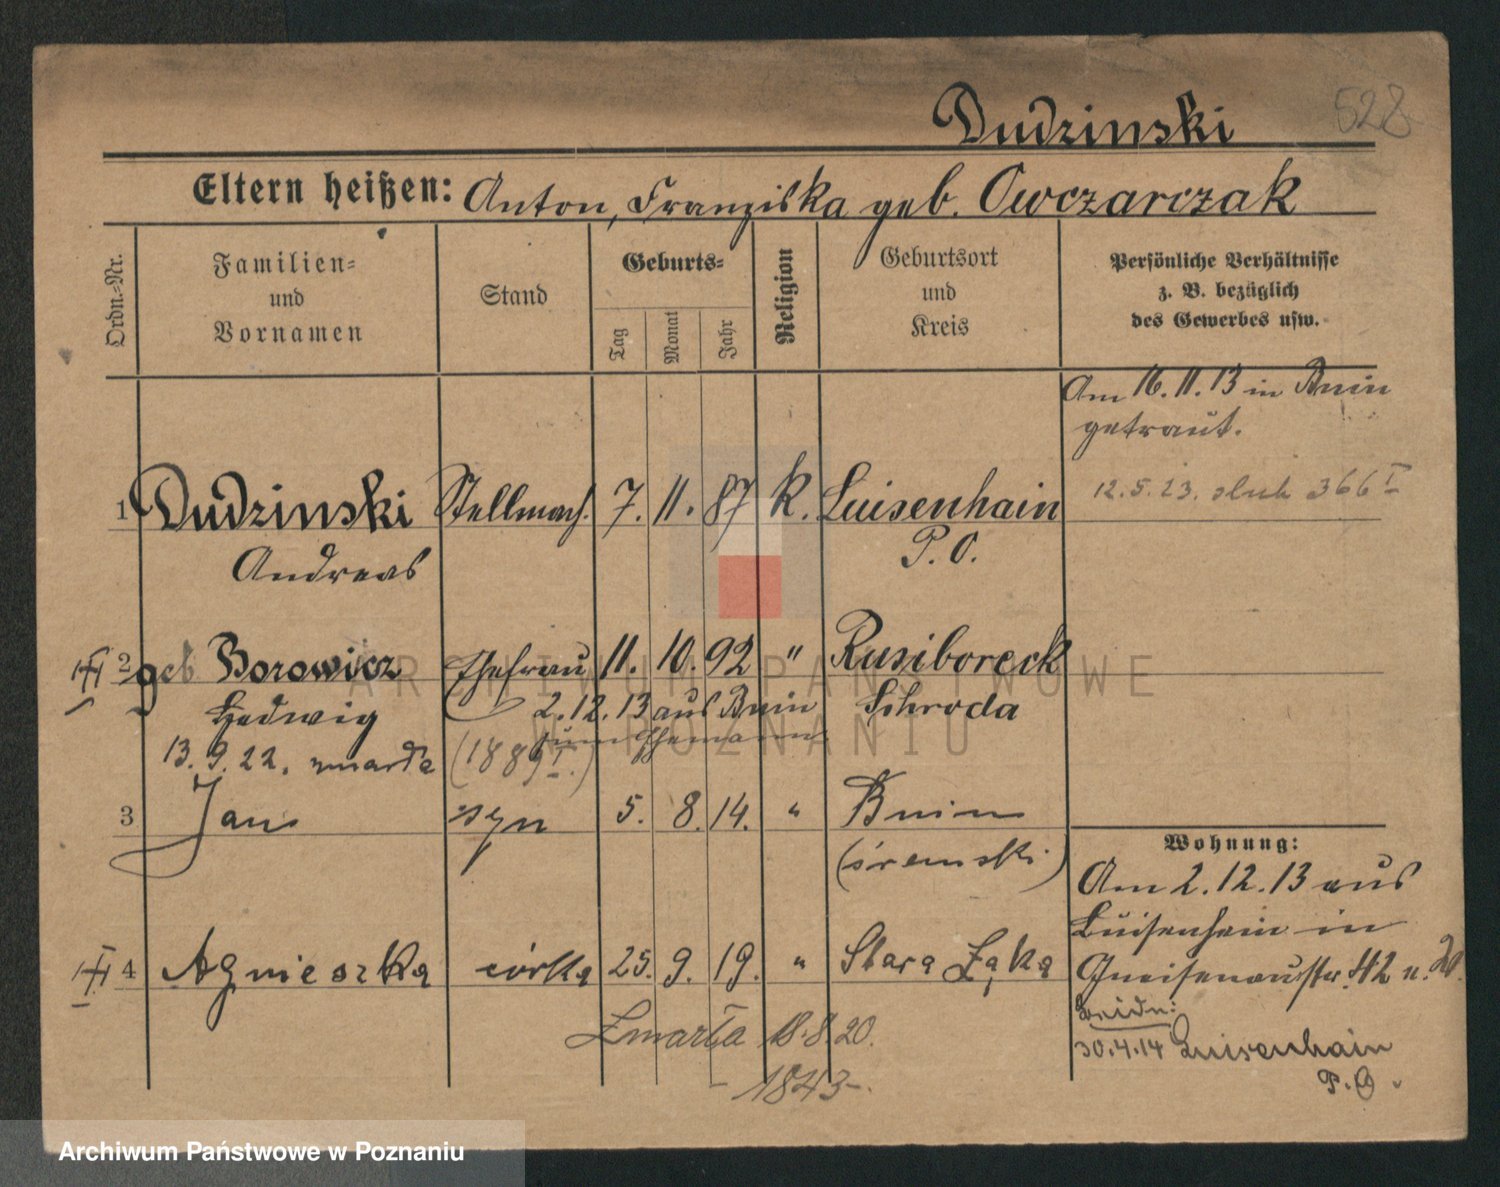 Dudzinski 528
Eltern heißen: Anton, Franziska geb. Owczarczak
Ordn.-Nr.
Familien-
und
Vornamen
Stand
Geburts-
Tag
Monat
Jahr
Religion
Geburtsort
und
Kreis
Persönliche Verhältnisse
z. B. bezüglich
des Gewerbes usw.
Am 16. 11. 13 in Bnin
getraut.
12. 5. 23. ślub 366 I
1 Dudzinski Stellmach. 7. 11. 87 k. Luisenhain
Andreas P. O.
2 geb Borowicz Ehefrau 11. 10. 92 " Rusiboreck
Hedwig 2. 12. 13 aus Bnin Schroda
zum Ehemann
13. 9. 22. zmarła (1889 I.)
3 Jan syn 5. 8. 14. " Bnin
(śremski)
4 Agnieszka córka 25. 9. 19. " Stara Łąka
Zmarła 18. 8. 20.
- 1843 -.
Wohnung:
Am 2. 12. 13 aus
Luisenhain in
Gneisenaustr. 42 u.
beide:
30. 4. 14 Luisenhain
P. O.
ARCHIWUM PAŃSTWOWE
W POZNANIU
Archiwum Państwowe w Poznaniu